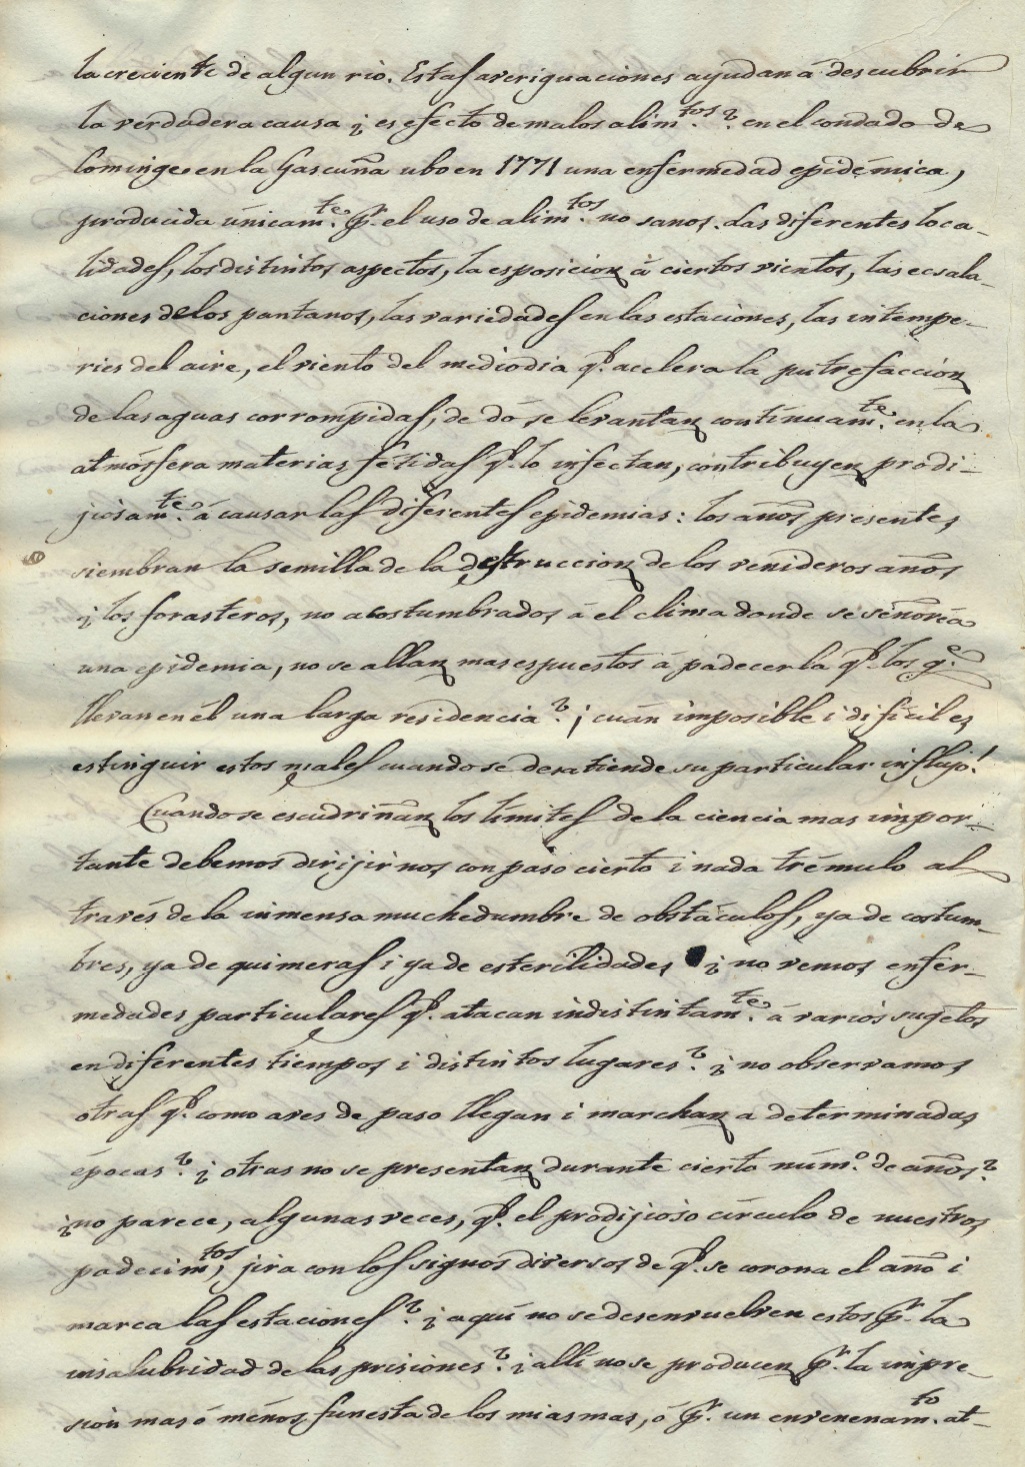 la creciente de algun rio. Estas averiguaciones ayudan á descubrir
la verdadera causa ¿ es efecto de malos alim.tos? en el condado de
Cominge en la Gascuña ubo en 1771 una enfermedad epidémica,
producida únicam.te p.r el uso de alim.tos no sanos. Las diferentes loca-
lidades, los distintos aspectos, la esposicion á ciertos vientos, las ecsala-
ciones de los pantanos, las variedades en las estaciones, las intempe-
ries del aire, el viento del mediodia q.e acelera la putrefaccion
de las aguas corrompidas, de dó se levantan contínuam.te en la
atmósfera materias fétidas q.e lo infectan, contribuyen prodi-
jiosam.te á causar las diferentes epidemias: los años presentes
siembran la semilla de la destruccion de los venideros años
¿ los forasteros, no acostumbrados á el clima donde se señoréa
una epidemia, no se allan mas espuestos á padecerla q.e los q.e
llevan en él una larga residencia? ¡ cuán imposible i dificil es
estinguir estos males cuando se desatiende su particular influjo!
Cuando se escudriñan los límites de la ciencia mas impor-
tante debemos dirijirnos con paso cierto i nada trémulo al
través de la inmensa muchedumbre de obstáculos, ya de costum-
bres, ya de quimeras i ya de esterilidades ¿ no vemos enfer-
medades particulares q.e atacan indistintam.te á varios sugetos
en diferentes tiempos i distintos lugares? ¿ no observamos
otras q.e como aves de paso llegan i marchan a determinadas
épocas? ¿ otras no se presentan durante cierto núm.o de años?
¿no parece, algunas veces, q.e el prodijioso círculo de nuestros
padecim.tos, jira con los signos diversos de q.e se corona el año i
marca las estaciones? ¿ aquí no se desenvuelven estos p.r la
insalubridad de las prisiones? ¿ allí no se producen p.r la impre-
sion mas ó ménos funesta de los miasmas, ó p.r un envenenam.to at-